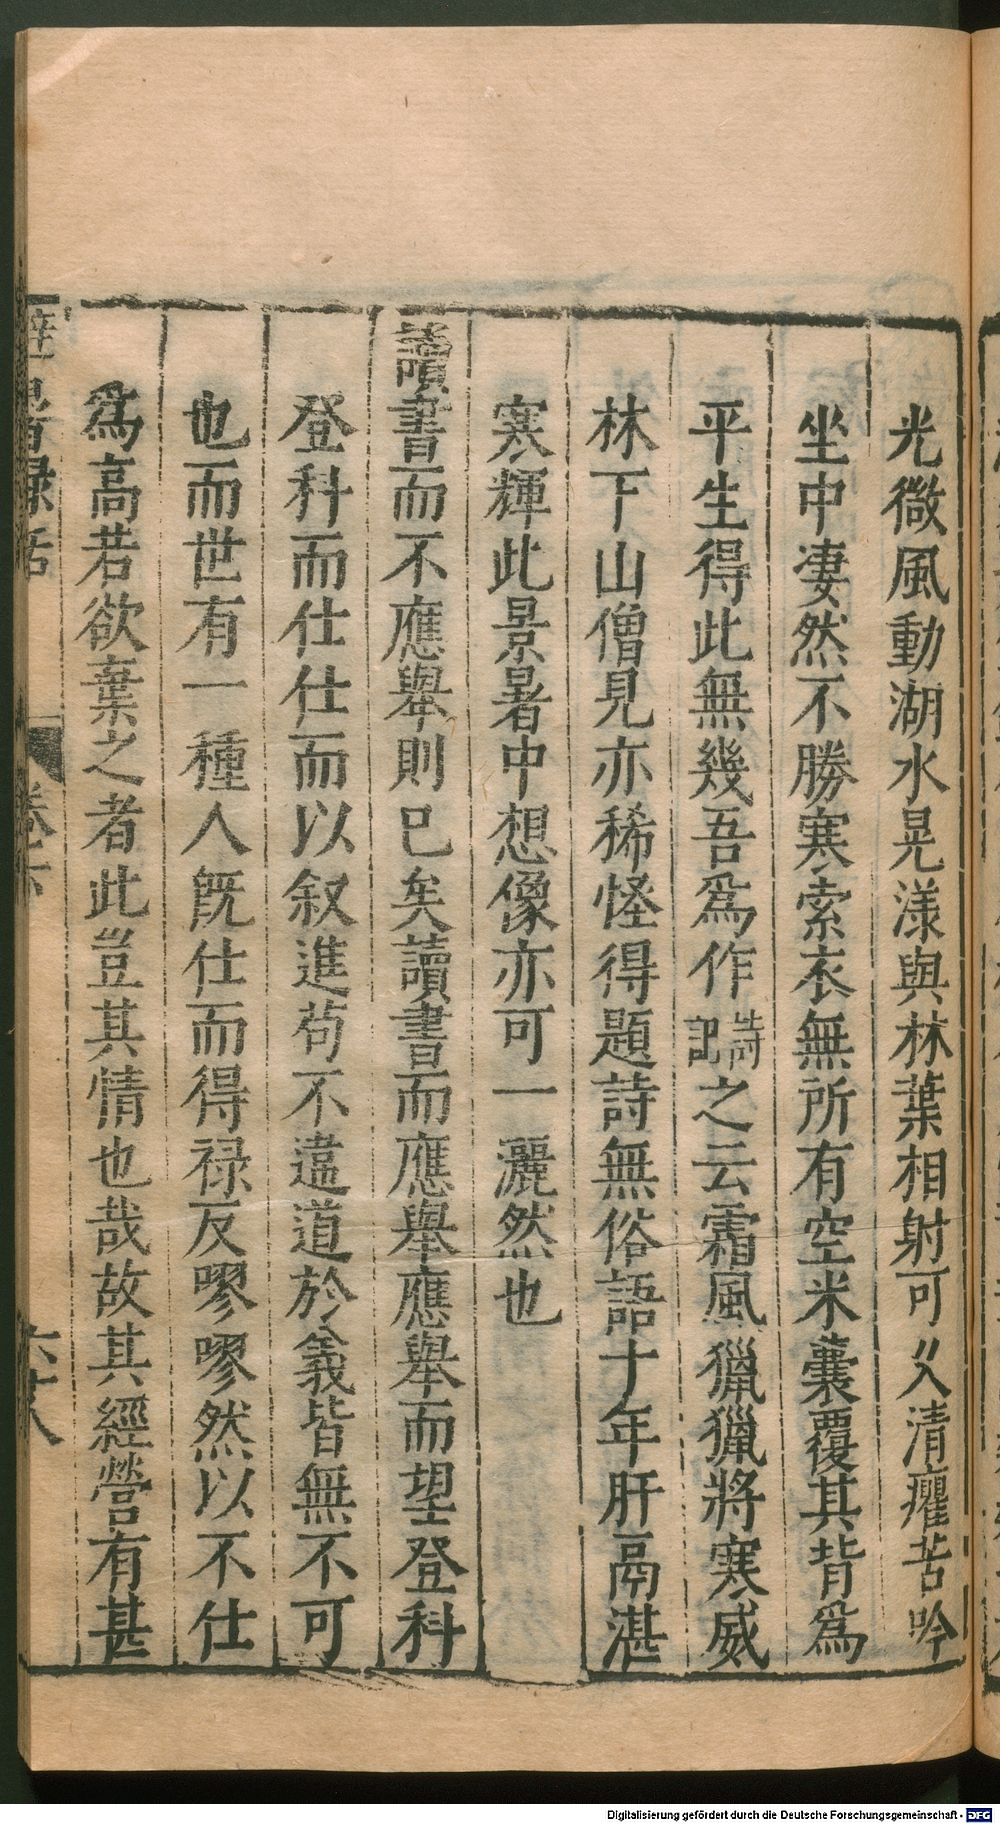 光微風動湖水晃漾與林葉相射可久清癯苦吟
坐中凄然不勝寒索衣無所有空米囊覆其背爲
平生得此無幾吾爲作詩記之云霜風獵獵將寒威
林下山僧見亦稀怪得題詩無俗語十年肝鬲湛
寒輝此景暑中想像亦可一灑然也
讀書而不應舉則已矣讀書而應舉應舉而望登科
登科而仕仕而以叙進苟不違道於義皆無不可
也而世有一種人既仕而得禄反嘐嘐然以不仕
爲高若欲棄之者此豈其情也哉故其經營有甚
避暑録話
卷六
六十八
Digitalisierung gefördert durch die Deutsche Forschungsgemeinschaft - DFG